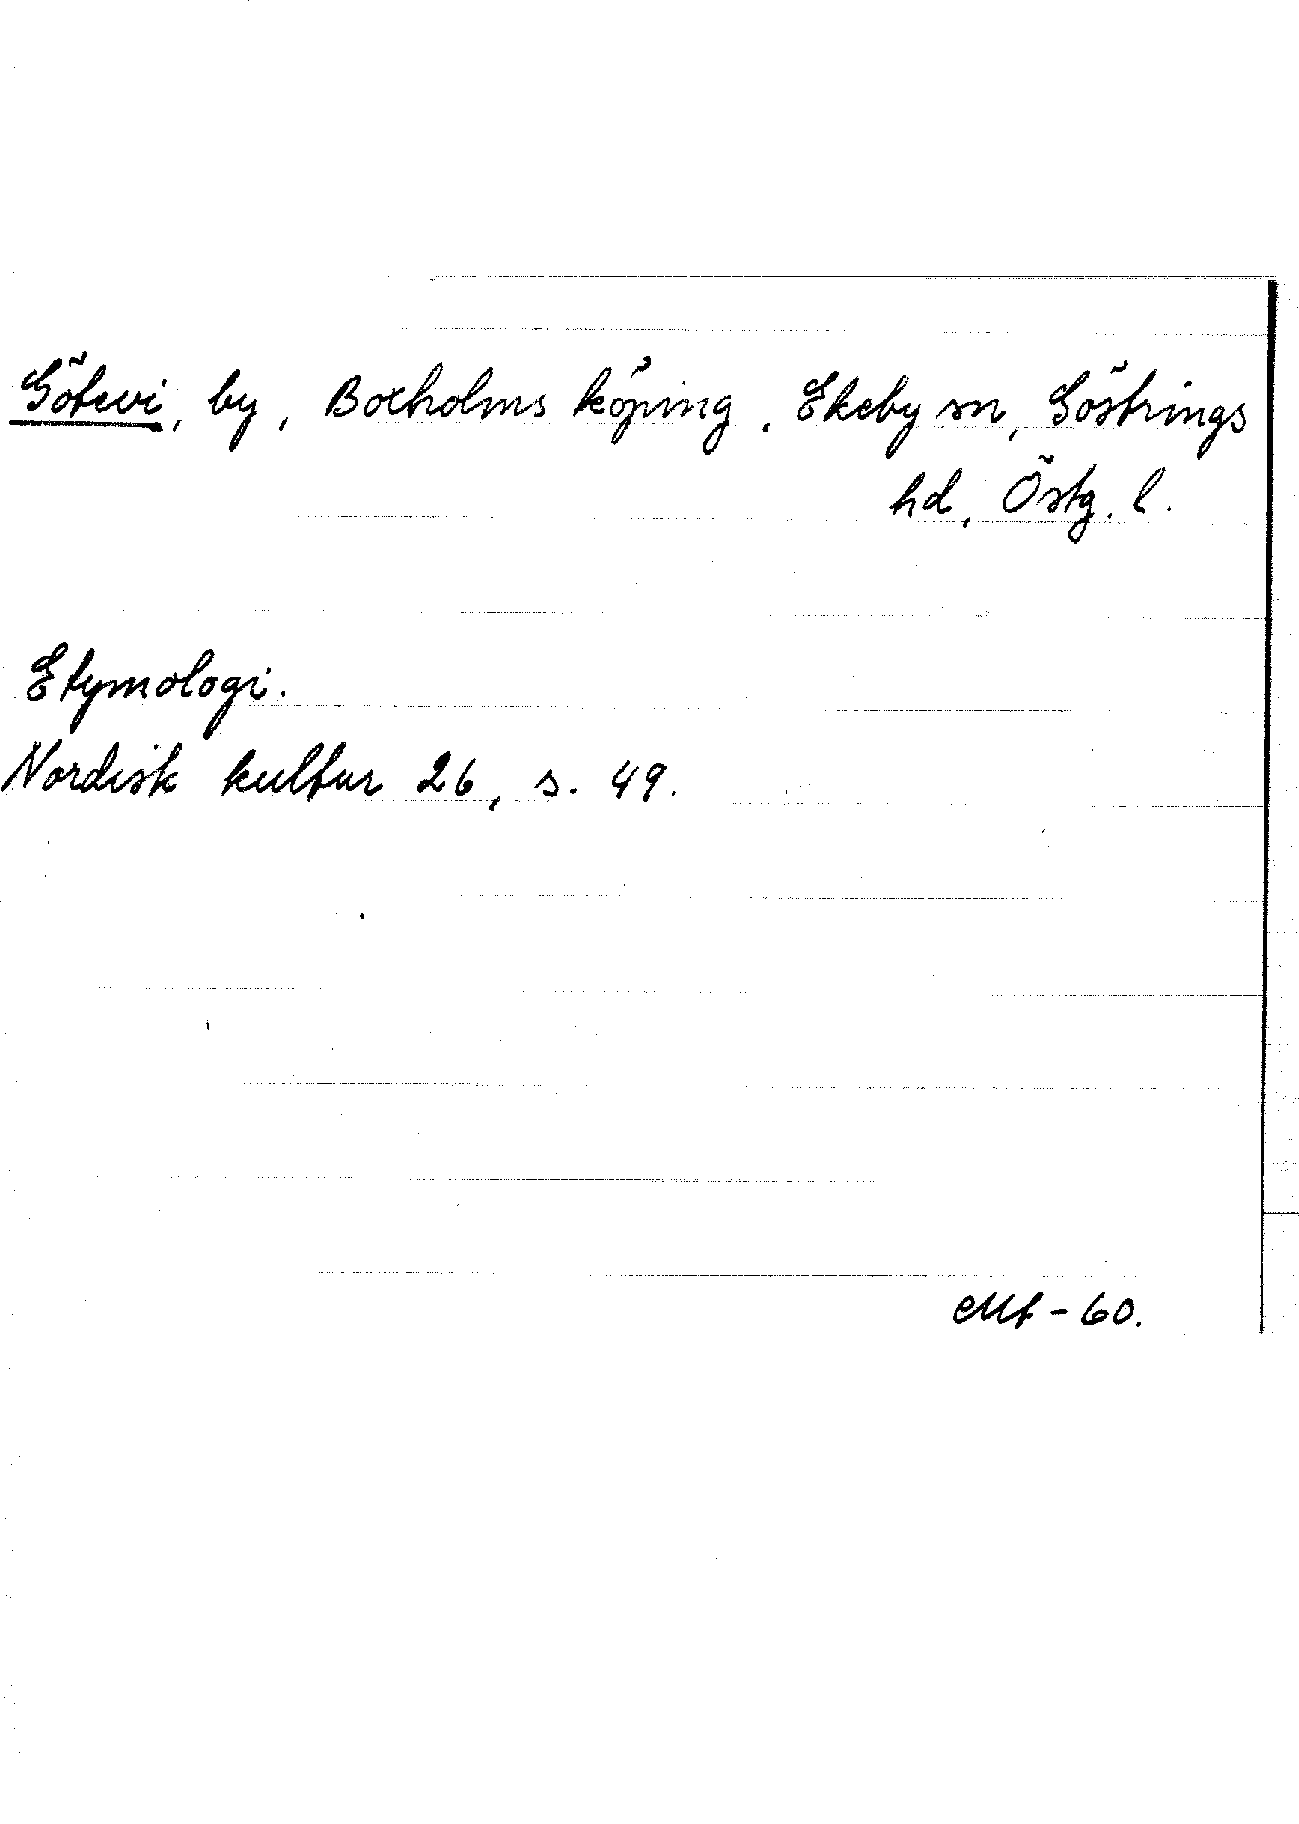 Götevi, by, Boxholms köping, Ekeby sn, Göstrings
hd, Östg. l.
Etymologi.
Nordisk kultur 26, s. 49.
-60.